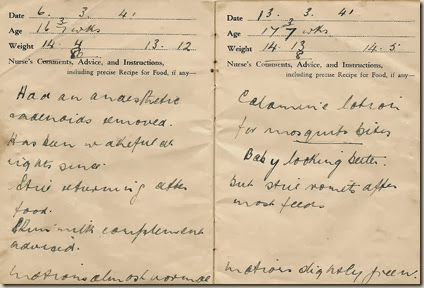 Date 6. 3. 41
Age 16 3/7 wks
Weight 14. 4 13. 12
Nurse's Comments, Advice, and Instructions,
including precise Recipe for Food, if any—
Had an anaesthetic
adenoids removed.
Has been wakeful at
nights since.
Still returning after
food.
Skim milk complement
advised.
motions almost normal
Date 13. 3. 41
Age 17 3/7 wks
Weight 14. 13 14. 5
Nurse's Comments, Advice, and Instructions,
including precise Recipe for Food, if any—
Calamine lotion
for mosquito bites
Baby looking better.
but still vomits after
most feeds
motions slightly green.